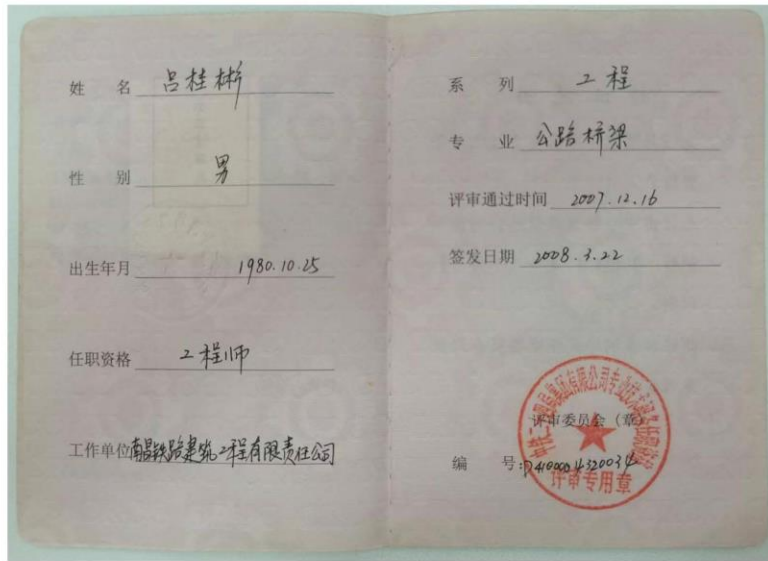 姓 名 吕桂彬
性 别 男
出生年月 1980.10.25
任职资格 工程师
工作单位 南昌铁路建筑工程有限责任公司
系 列 工程
专 业 公路桥梁
评审通过时间 2007.12.16
签发日期 2008.3.22
评审委员会（章）
编 号:
评审专用章